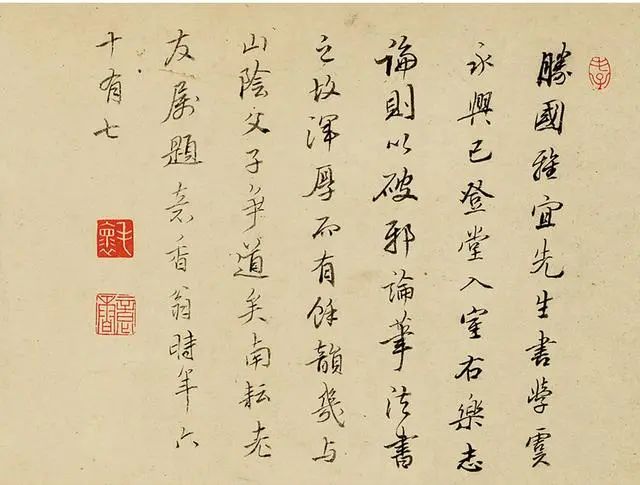 勝國雅宜先生書學虞
永興已登堂入室右樂志
論則以破邪論筆法書
之故渾厚而有餘韻幾与
山陰父子爭道矣南耘老
友屬題意香翁時年六
十有七
毛懷
意香